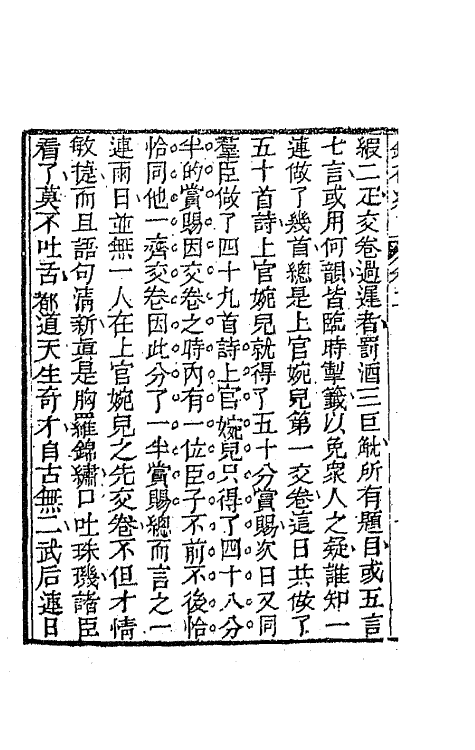 緞二疋交卷過遲者罰酒三巨觥所有題目或五言
七言或用何韻皆臨時掣籤以免衆人之疑誰知一
連做了幾首總是上官婉兒第一交卷這日共做了
五十首詩上官婉兒就得了五十分賞賜次日又同
羣臣做了四十九首詩上官婉兒只得了四十八分
半的賞賜因交卷之時內有一位臣子不前不後恰
恰同他一齊交卷因此分了一半賞賜總而言之一
連兩日並無一人在上官婉兒之先交卷不但才情
敏捷而且語句清新真是胸羅錦繡口吐珠璣諸臣
看了莫不吐舌都道天生奇才自古無二武后連日